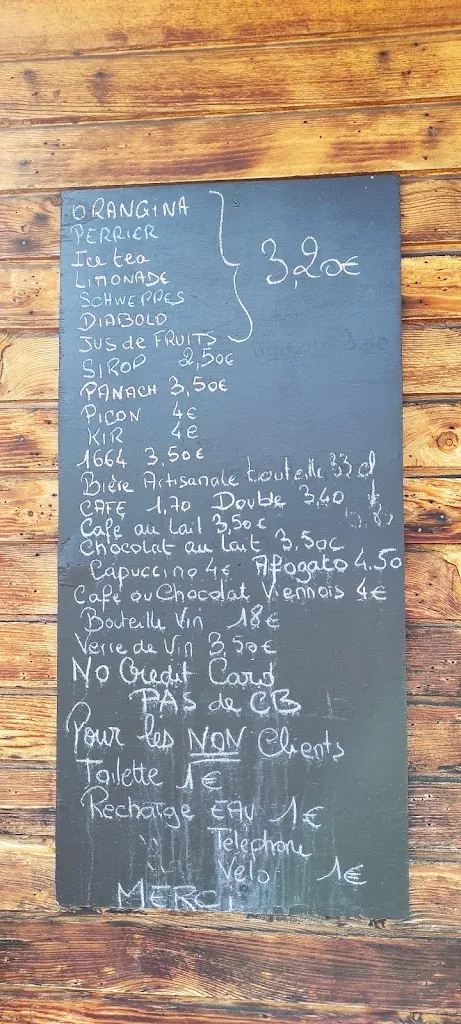 ORANGINA
PERRIER
Ice tea
LIMONADE
SCHWEPPES
DIABOLO
JUS de FRUITS
3,20€
SIROP 2,50€
PANACH 3,50€
PICON 4€
KIR 4€
1664 3,50€
Bière Artisanale bouteille 33 cl
CAFE 1,70 Double 3,40
Café au lait 3,50€
Chocolat au lait 3,50€
Capuccino 4€ Afogato 4.50
Café ou Chocolat Viennois 4€
Bouteille Vin 18€
Verre de Vin 3,50€
No Credit Card
PAS de CB
Pour les NON Clients
Toilette 1€
Recharge EAU 1€
Téléphone
Velo 1€
MERCI